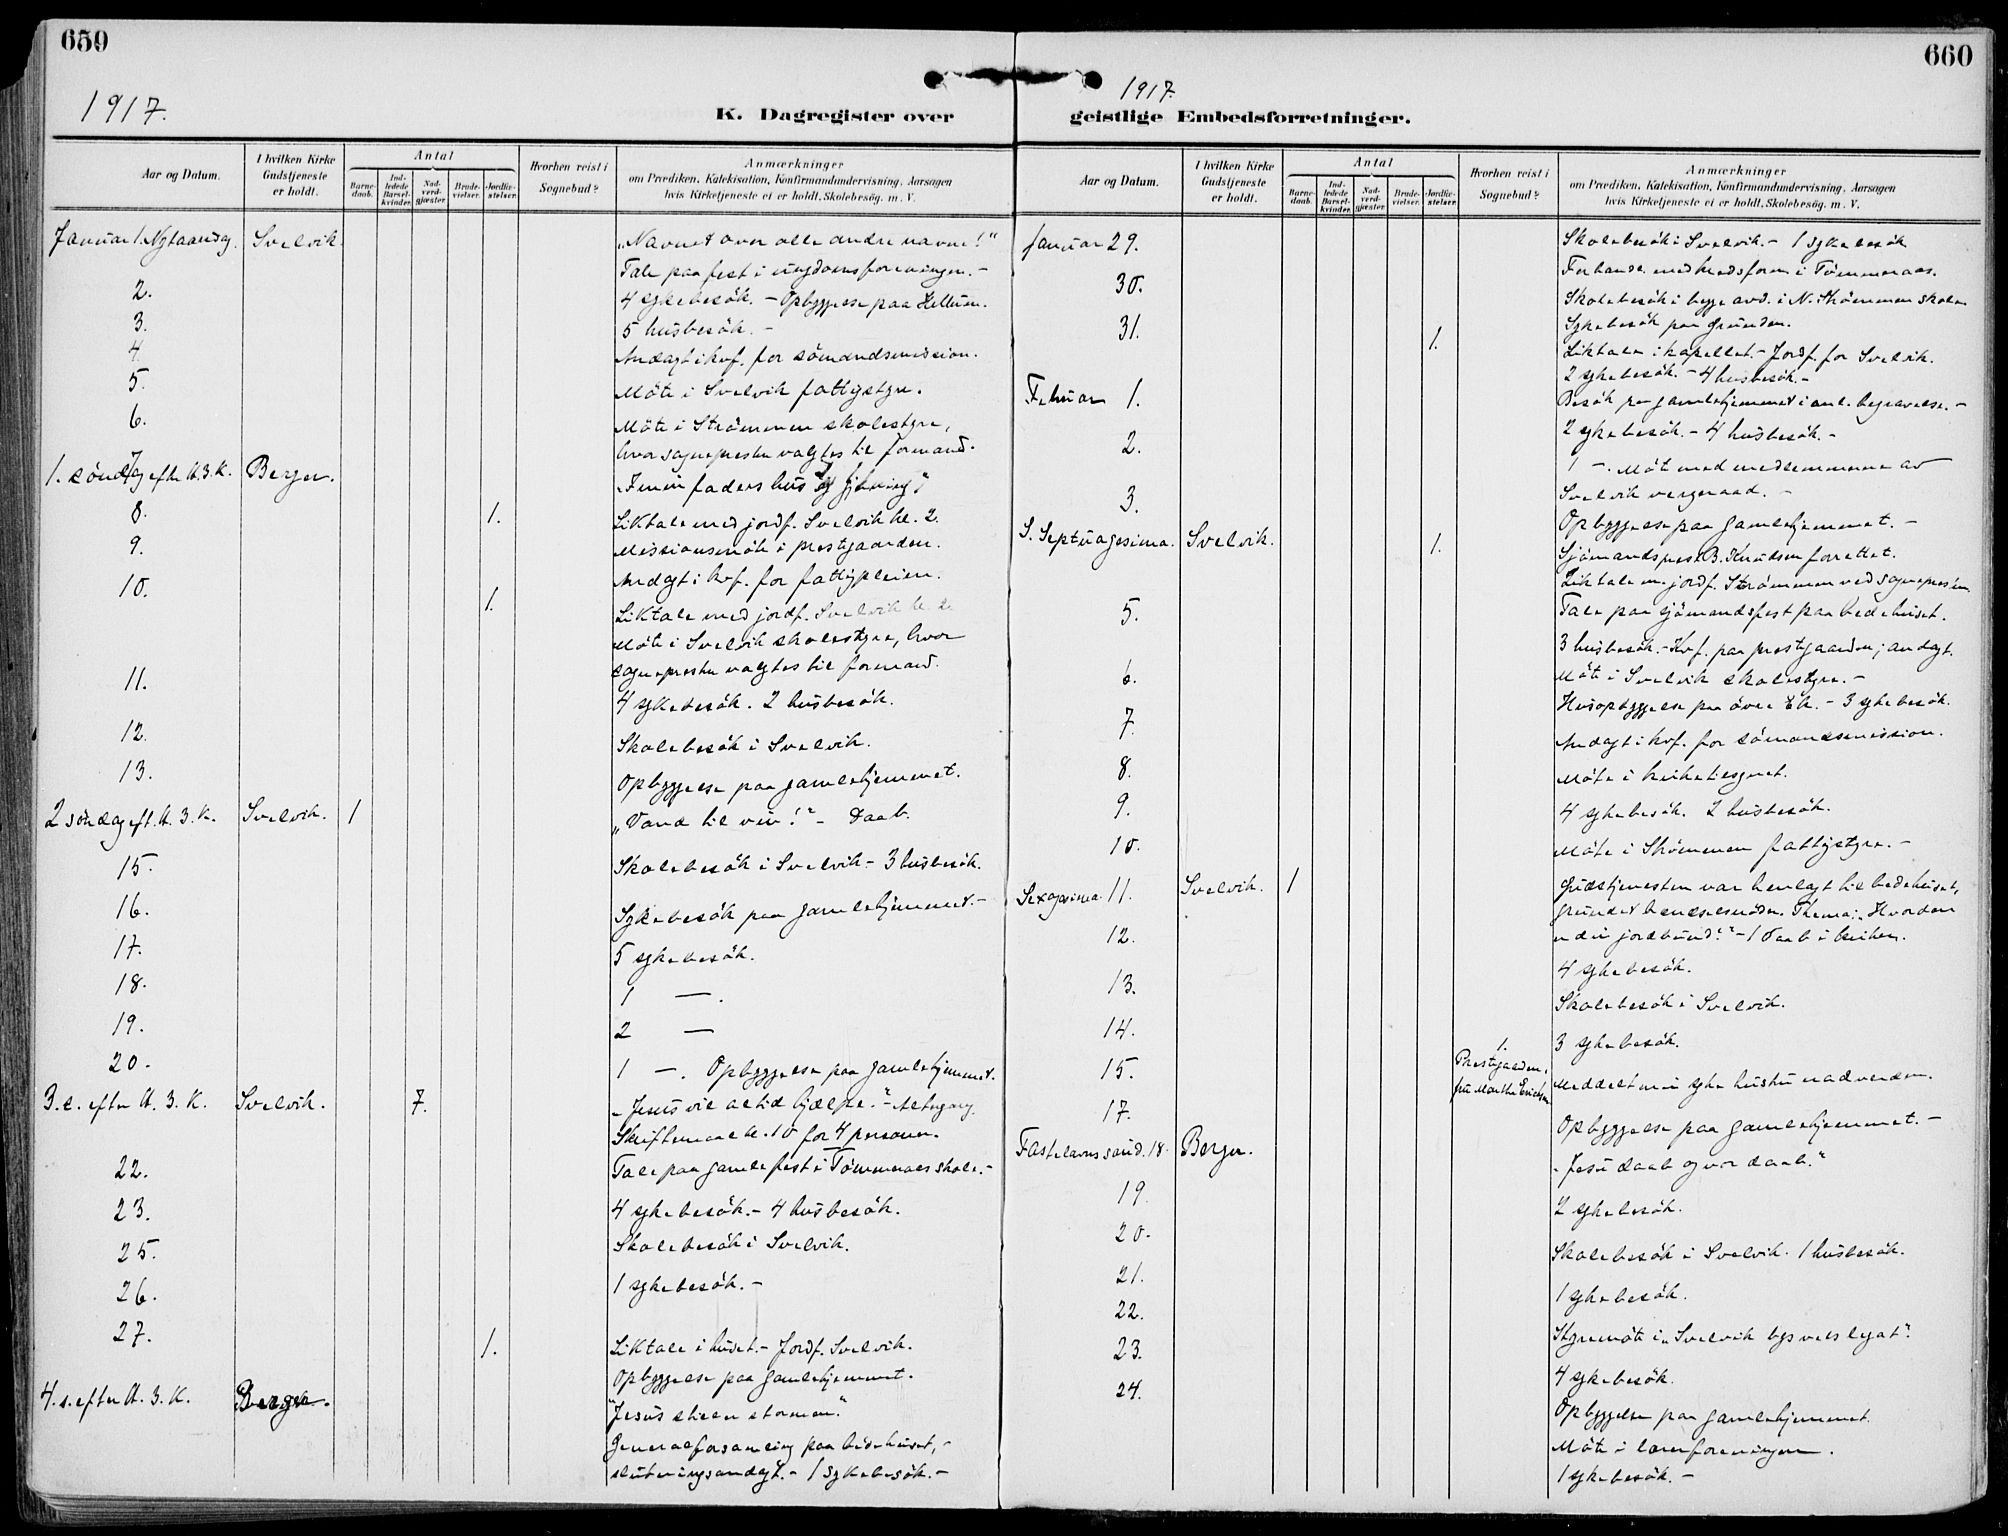 659
1917.
K. Dagregister over
Aar og Datum.
I hvilken Kirke Gudstjeneste er holdt.
Antal
Barne-daab.
Ind-ledede Barsel-kvinder.
Nad-verd-gjæster.
Brude-vielser.
Jordfæ-stelser.
Hvorhen reist i Sognebud?
Anmærkninger
om Prædiken, Katekisation, Konfirmandundervisning, Aarsagen
hvis Kirketjeneste ei er holdt, Skolebesøg. m. V.
Januar 1. Nytaarsdag. Svelvik. „Navnet over alle andre navne!“
Tale paa fest i ungdomsforeningen. -
2. 4 sykebesök. - Opbyggelse paa Hellum.
3. 5 husbesök. -
4. Andagt i kvf. for sömandsmission.
5. Möte i Svelvik fattigstyre.
6. Möte i Strömmen skolestyre,
hvor sognepresten valgtes til formand.
1. söndag efter H. 3. K. 7 Berger.
8. 1. Liktale med jordf. Svelvik kl. 2.
9. Missionsmöte i prestgaarden.
Andagt i kvf. for fattigpleien.
10. 1. Liktale med jordf. Svelvik kl. 2.
Möte i Svelvik skolestyre, hvor
sognepresten valgtes til formand.
11. 4 sykebesök. 2 husbesök.
12. Skolebesök i Svelvik.
13. Opbyggelse paa gamlehjemmet.
2 söndag eft. H. 3. K. Svelvik. 1 „Vand til vin!“ - Daab.
15. Skolebesök i Svelvik - 3 husbesök.
16. Sykebesök paa gamlehjemmet. -
17. 5 sykebesök.
18. 1 - .
19. 2 -
20. 1 - . Opbyggelse paa gamlehjemmet.
3. s. efter H. 3. K. Svelvik. 7. „Jesus vil altid hjælpe.“ - Altergang.
Skriftemaal kl. 10 for 4 personer.
22. Tale paa gamlefest i Tömmeraas skole. -
23. 4 sykebesök. - 4 husbesök.
25. Skolebesök i Svelvik.
26. 1 sykebesök. -
27. 1. Liktale i huset. - Jordf. Svelvik.
Opbyggelse paa gamlehjemmet.
4. s. efter H. 3. K. Berger. „Jesus stiller stormen.“
Generalforsamling paa bedehuset, -
slutningsandagt. - 1 sykebesök. -
660
1917.
geistlige Embedsforretninger.
Aar og Datum.
I hvilken Kirke Gudstjeneste er holdt.
Antal
Barne-daab.
Ind-ledede Barsel-kvinder.
Nad-verd-gjæster.
Brude-vielser.
Jordfæ-stelser.
Hvorhen reist i Sognebud?
Anmærkninger
om Prædiken, Katekisation, Konfirmandundervisning, Aarsagen
hvis Kirketjeneste ei er holdt, Skolebesøg. m. V.
Januar 29. Skolebesök i Svelvik. - 1 sykebesök
i Tömmeraas.
30. Skolebesök i begge avd. i N. Strömmen skole.
Sykebesök paa Grunden.
31. 1. Liktale i kapellet. - Jordf. for Svelvik.
2 sykebesök. - 4 husbesök. -
Februar 1. Besök paa gamlehjemmet i anl. begravelse. -
2 sykebesök. - 4 husbesök. -
2. 1 - . Möte med medlemmerne av
Svelvik vergeraad. -
3. Opbyggelse paa gamlehjemmet. -
S. Septuagesima. Svelvik. 1. Sjömandsprest B. Knudsen forrettet.
Liktale m. jordf. Strömmen ved sognepresten.
Tale paa sjömandsfest paa bedehuset.
5. 3 husbesök. - Kvf. paa prestgaarden; andagt.
6. Möte i Svelvik skolestyre. -
Husopbyggelse paa övre Ek. - 3 sykebesök.
7. Andagt i kvf. for sömandsmission.
8. Möte i kirketilsynet.
9. 4 sykebesök. 2 husbesök.
10. Möte i Strömmen fattigstyre. -
Sexagesima. 11. Svelvik. 1 Gudstjenesten var henlagt til bedehuset,
grundet brendselsnöden. Thema: „Hvordan
er din jordbund?“ - 1 daab i kirken.
12. 4 sykebesök.
13. Skolebesök i Svelvik.
14. 3 sykebesök.
15. 1. Prestgaarden, fru Marthe Ericksen Meddelt min syke hustru nadverden.
17. Opbyggelse paa gamlehjemmet. -
Fastelavns sönd. 18. Berger. „Jesu daab og vor daab.“
19. 2 sykebesök.
20. Skolebesök i Svelvik. 1 husbesök.
21. 1 sykebesök.
22. Styremöte i „Svelvik bys vels legat“.
23. 4 sykebesök.
24. Opbyggelse paa gamlehjemmet.
Möte i lærerforeningen.
1 sykebesök. -